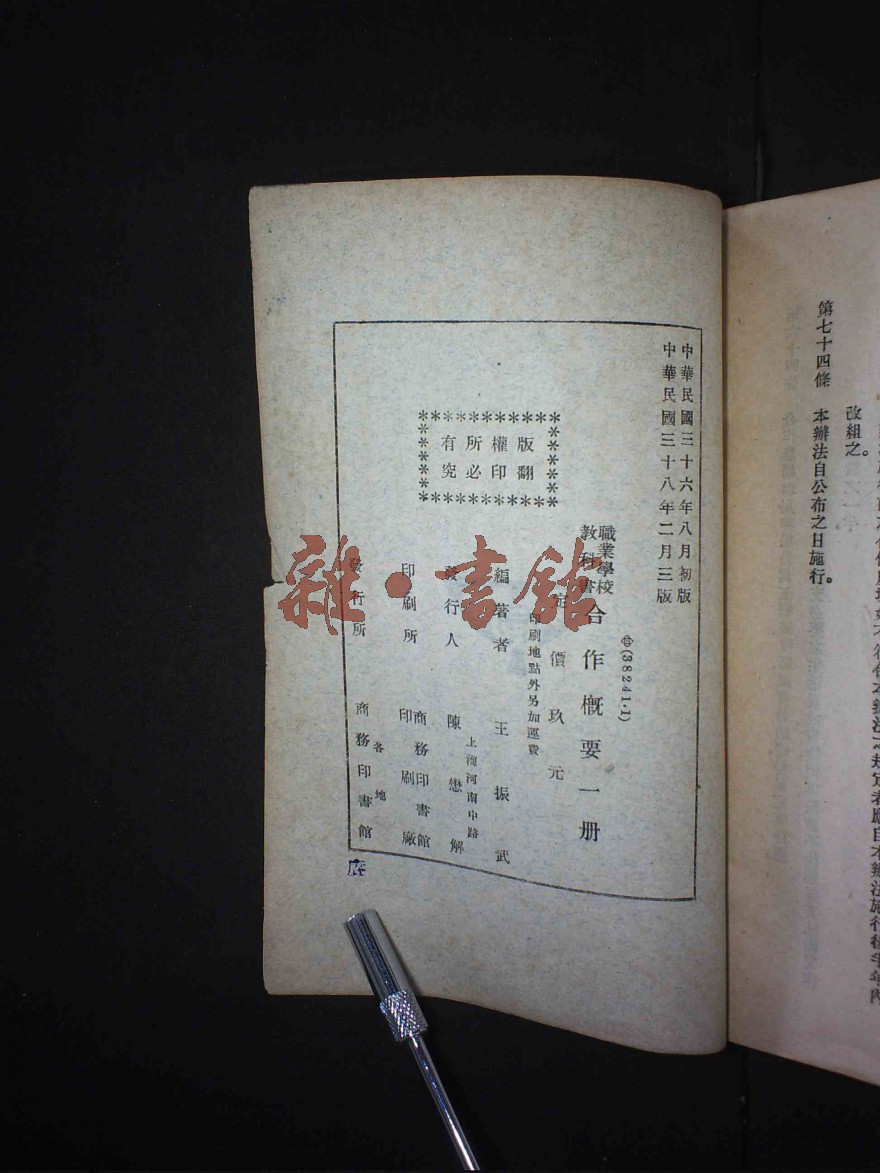 改組之。
第七十四條　本辦法自公布之日施行。
中華民國三十六年八月初版
中華民國三十八年二月三版
㊥(38241·1)
職業學校
教科書
合作概要一册
定價玖元
印刷地點外另加運費
版權所有
翻印必究
編著者　王振武
上海河南中路
發行人　陳懋解
印刷所　商務印書館
印刷廠
各地
發行所　商務印書館
雜·書館